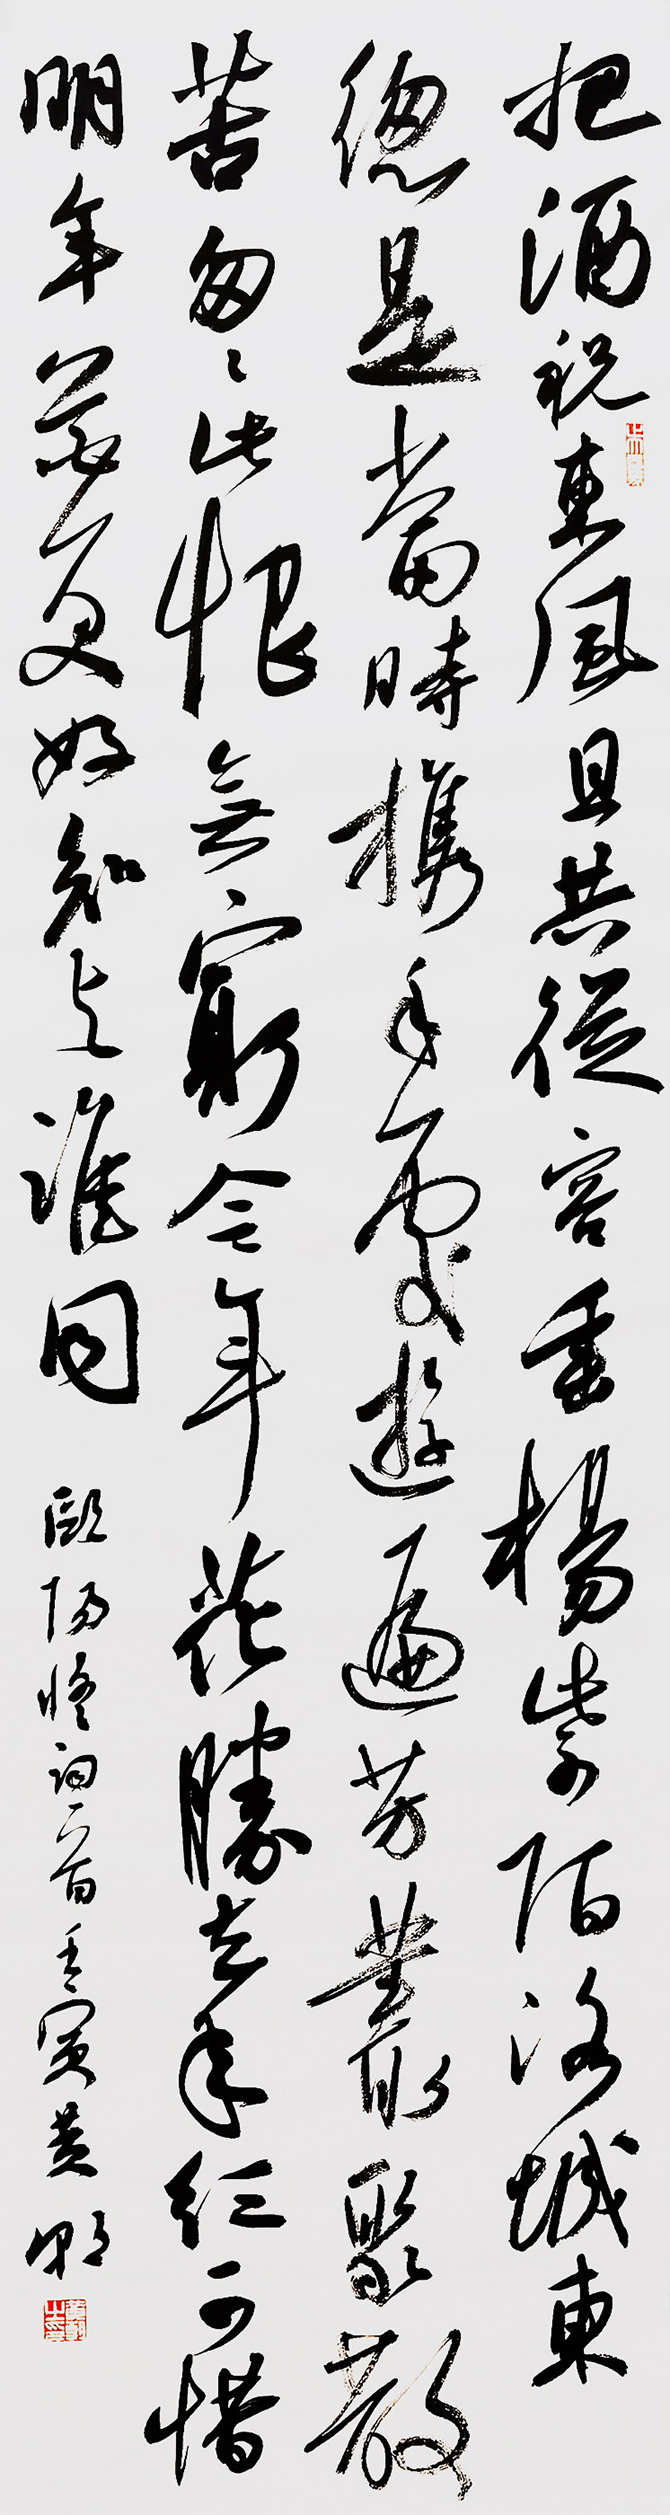 把酒祝東風且共從容垂楊紫陌洛城東
總是當時攜手處遊遍芳叢聚散
苦匆匆此恨無窮今年花勝去年紅可惜
明年花更好知与誰同
歐陽修詞一首壬寅黄